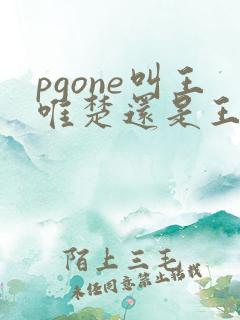 pgone叫王
唯楚還是王
陌上三毛
未经同意禁止搭载